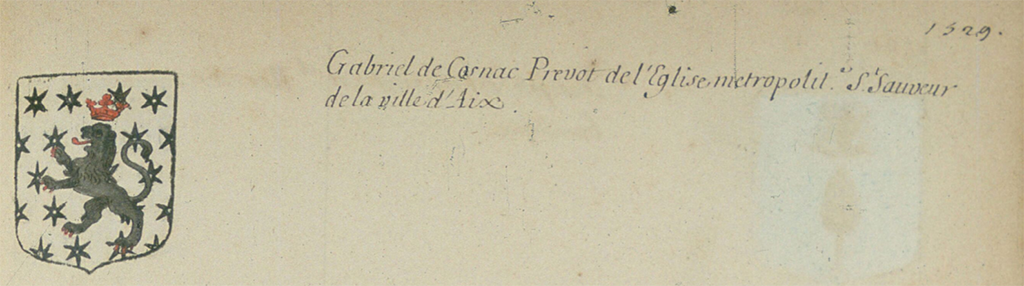 1329.
Gabriel de Cosnac Prevot de l'Eglise metropolit.ne St Sauveur
de la ville d'Aix.